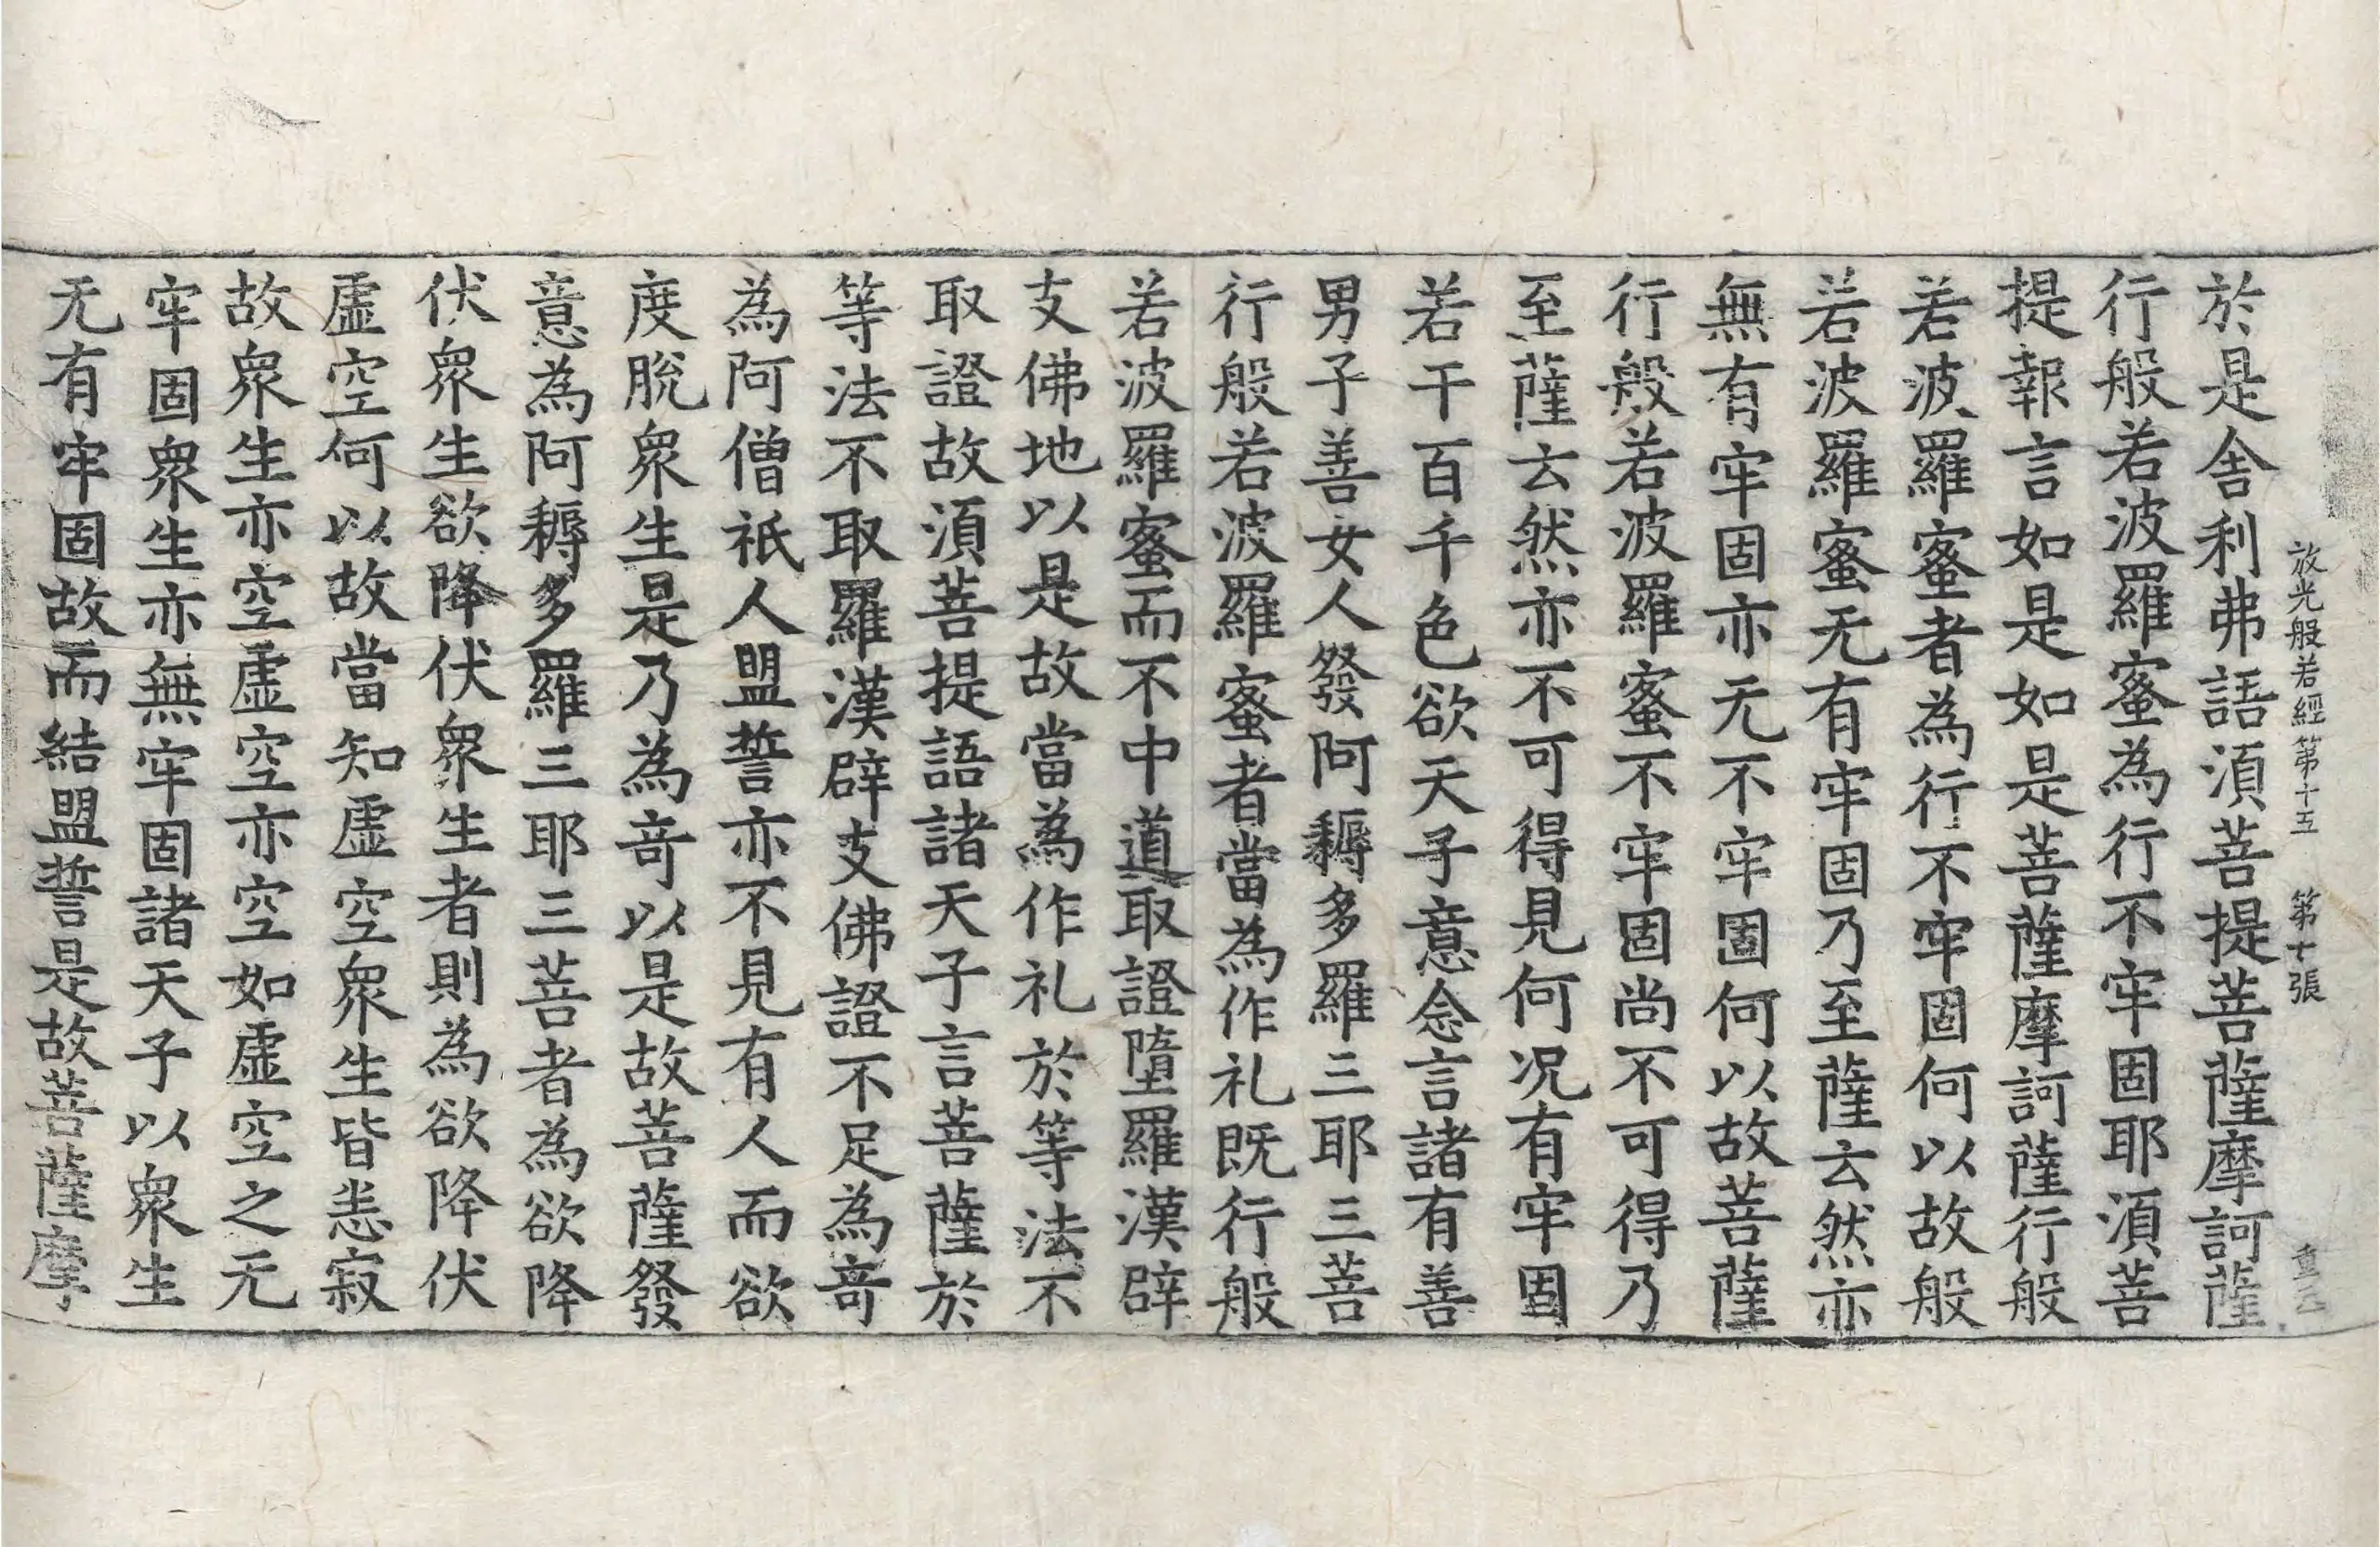 放光般若經第十五 第十張 重
於是舍利弗語湏菩提菩薩摩訶薩
行般若波羅蜜為行不牢固耶湏菩
提報言如是如是菩薩摩訶薩行般
若波羅蜜者為行不牢固何以故般
若波羅蜜无有牢固乃至薩云然亦
無有牢固亦无不牢固何以故菩薩
行般若波羅蜜不牢固尚不可得乃
至薩云然亦不可得見何況有牢固
若干百千色欲天子意念言諸有善
男子善女人發阿耨多羅三耶三菩
行般若波羅蜜者當為作礼既行般
若波羅蜜而不中道取證墮羅漢辟
支佛地以是故當為作礼於等法不
取證故湏菩提語諸天子言菩薩於
等法不取羅漢辟支佛證不足為竒
為阿僧祇人盟誓亦不見有人而欲
度脫衆生是乃為竒以是故菩薩發
意為阿耨多羅三耶三菩者為欲降
伏衆生欲降伏衆生者則為欲降伏
虛空何以故當知虛空衆生皆恙寂
故衆生亦空虛空亦空如虛空之无
牢固衆生亦無牢固諸天子以衆生
无有牢固故而結盟誓是故菩薩摩